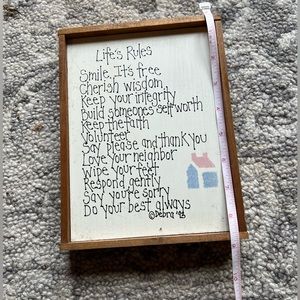 Life's Rules
Smile, It's free
Cherish wisdom
Keep your integrity
Build someones self worth
Keep the faith
Volunteer
Say please and thank you
Love your neighbor
Wipe your feet
Respond gently
Say you're sorry
Do your best always
©Debra '98